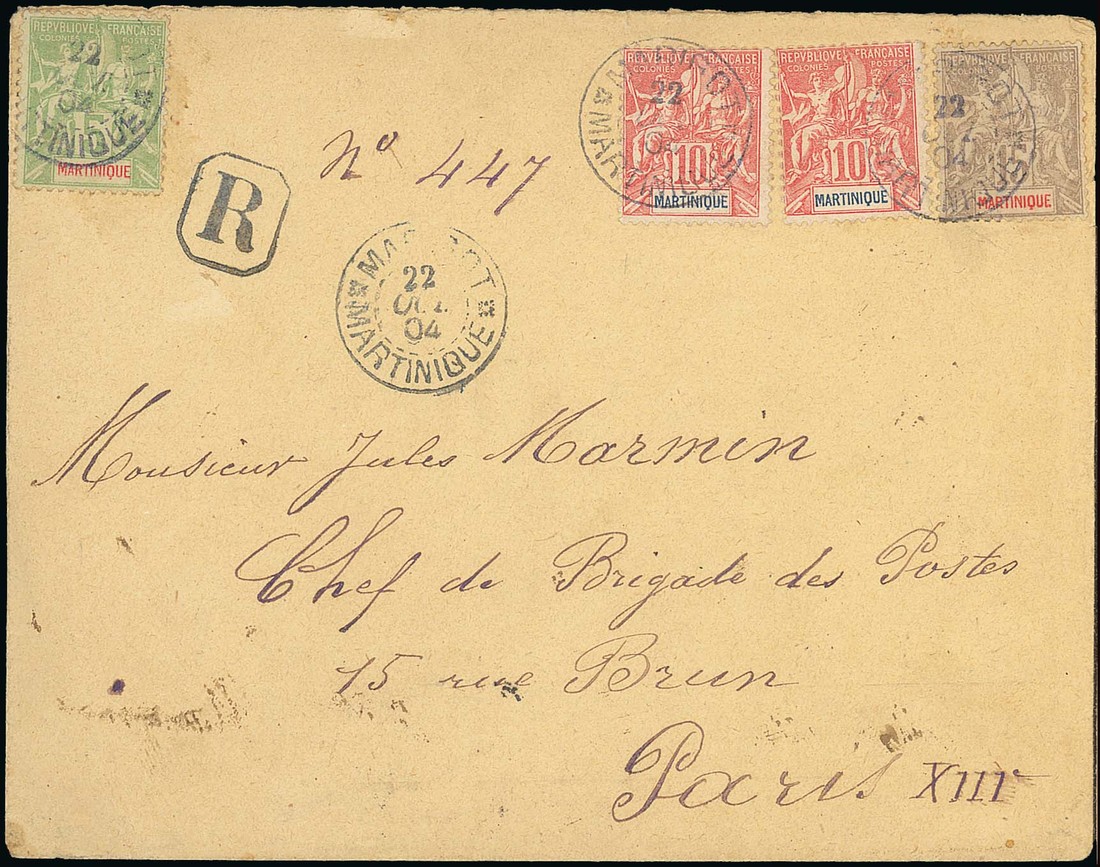 REPVBLIQUE FRANÇAISE
COLONIES POSTES
22
04
MARTINIQUE
MARTINIQUE
R
Nº 447
REPVBLIQUE FRANÇAISE
COLONIES POSTES
10
MARTINIQUE
REPVBLIQUE FRANÇAISE
COLONIES POSTES
10
MARTINIQUE
MARTINIQUE
22
MARTINIQUE
22
04
MARTINIQUE
22
04
MARTINIQUE
Monsieur Jules Marmin
Chef de Brigade des Postes
15 rue Brun
Paris XIIIe